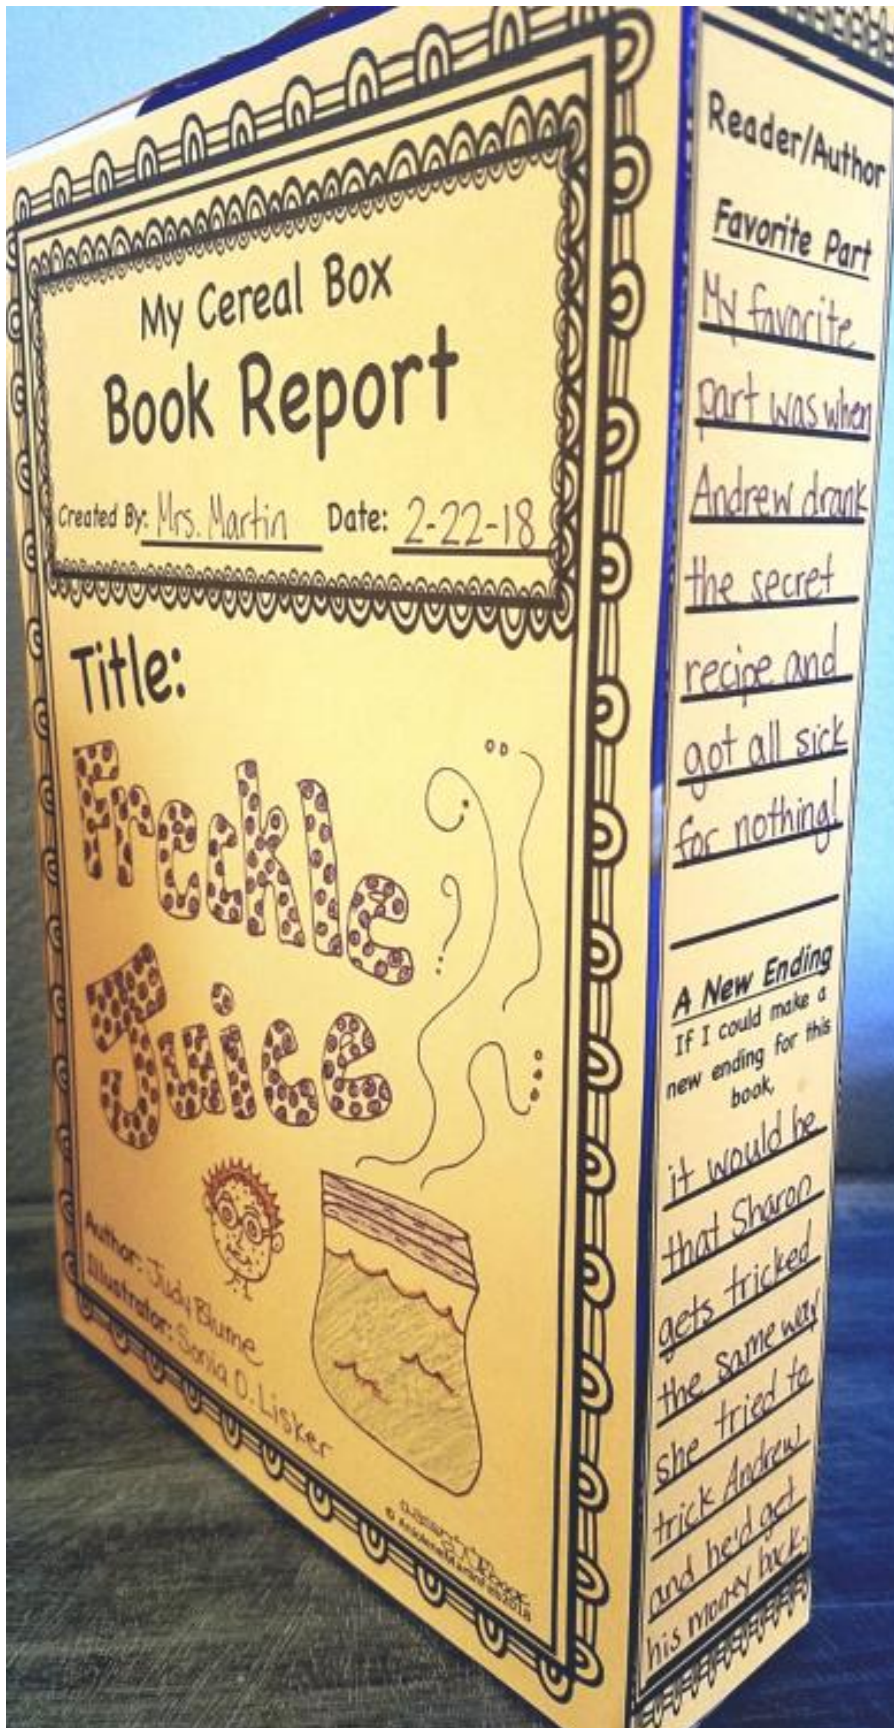 My Cereal Box
Book Report
Created By: Mrs. Martin Date: 2-22-18
Title:
Freckle
Juice
Author: Judy Blume
Illustrator: Sonia O. Lisker
Reader/Author
Favorite Part
My favorite
part was when
Andrew drank
the secret
recipe and
got all sick
for nothing!
A New Ending
If I could make a
new ending for this
book,
it would be
that Sharon
gets tricked
the same way
she tried to
trick Andrew
and he'd get
his money back.